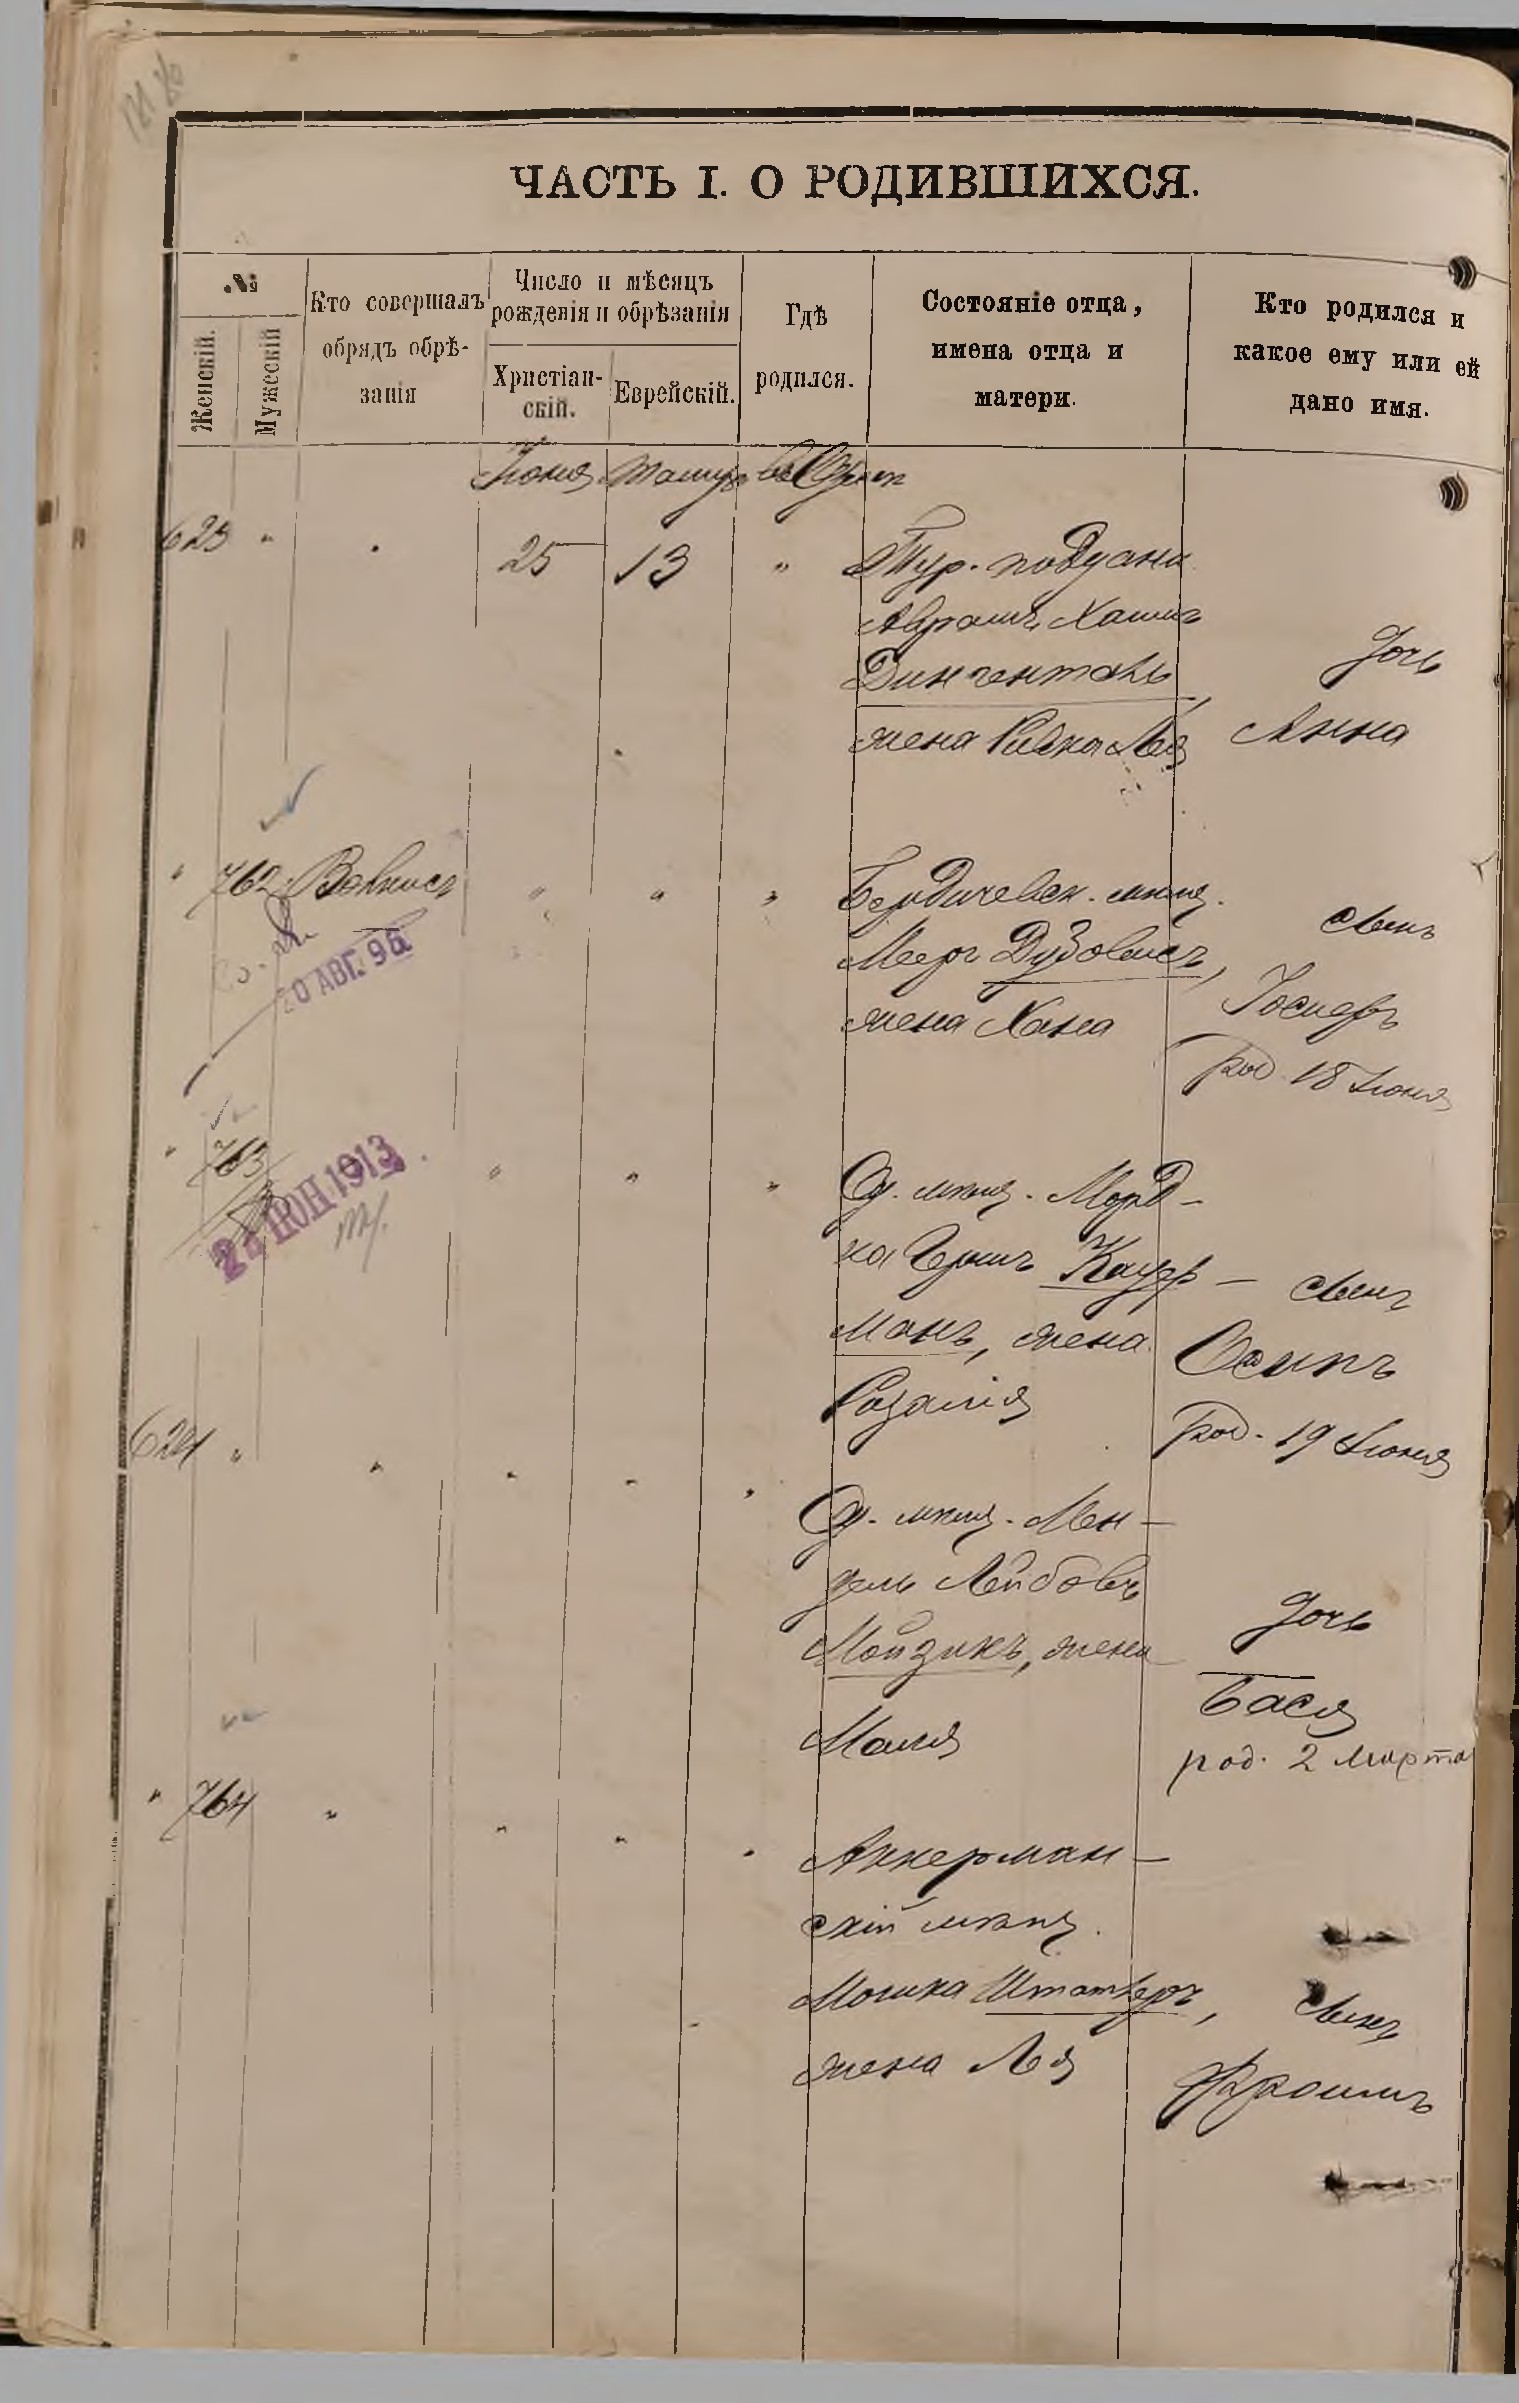 ЧАСТЬ I. О РОДИВШИХСЯ.
№
Женскій.
Мужескій
Кто совершалъ
обрядъ обрѣ-
занія
Число и мѣсяцъ
рожденія и обрѣзанія
Христіан-
скій.
Еврейскій.
Гдѣ
родился.
Состояніе отца,
имена отца и
матери.
Кто родился и
какое ему или ей
дано имя.
Іюня Тамуз въ Одессѣ
623 " " 25 13 " Тур. подданн.
Аврамъ Хаимъ
Дингенталь,
жена Ривка Лея
Дочь
Анна
" 762 " " " Бердичевск. мѣщ.
Мееръ Дудовичъ,
жена Хана
сынъ
Іосифъ
род. 18 Іюня
20 АВГ. 96
" 763 " " " Од. мѣщ.Морд-
ка Гершъ Кауф-
манъ, жена
Розалія
сынъ
Осипъ
род. 19 Іюня
2 ІЮН 1913
624 " " " " " Од. мѣщ. Мен-
дель Лейбовъ
Мойзикъ, жена
Маля
Дочь
Бася
род. 2 Марта
" 764 " " " " Аккерман-
скій мѣщ.
Мошка,
жена Лея
сынъ
Фроимъ